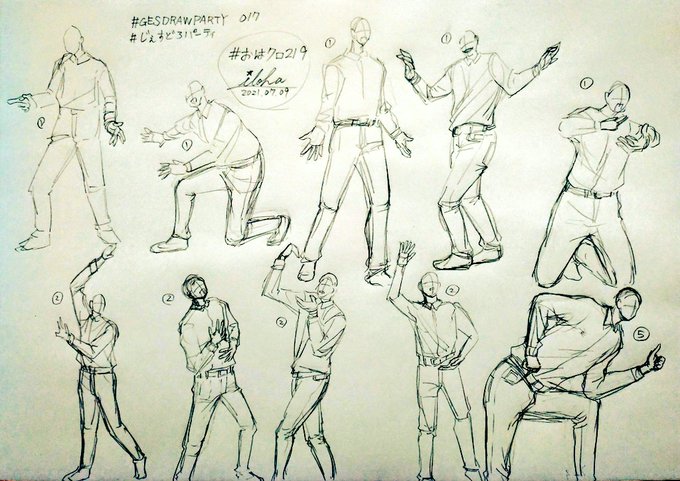 #GESDRAWPARTY 017
#じぇすどろパーティ
#おはクロ219
iloha
2021.07.09
①
①
①
①
①
②
②
②
②
⑤